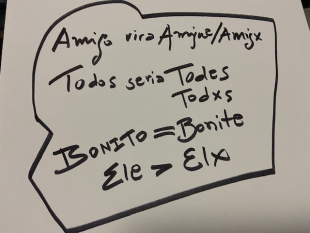 Amigo vira Amigue/Amigx
Todos seria Todes
Todxs
BONITO = Bonite
Ele > Elx